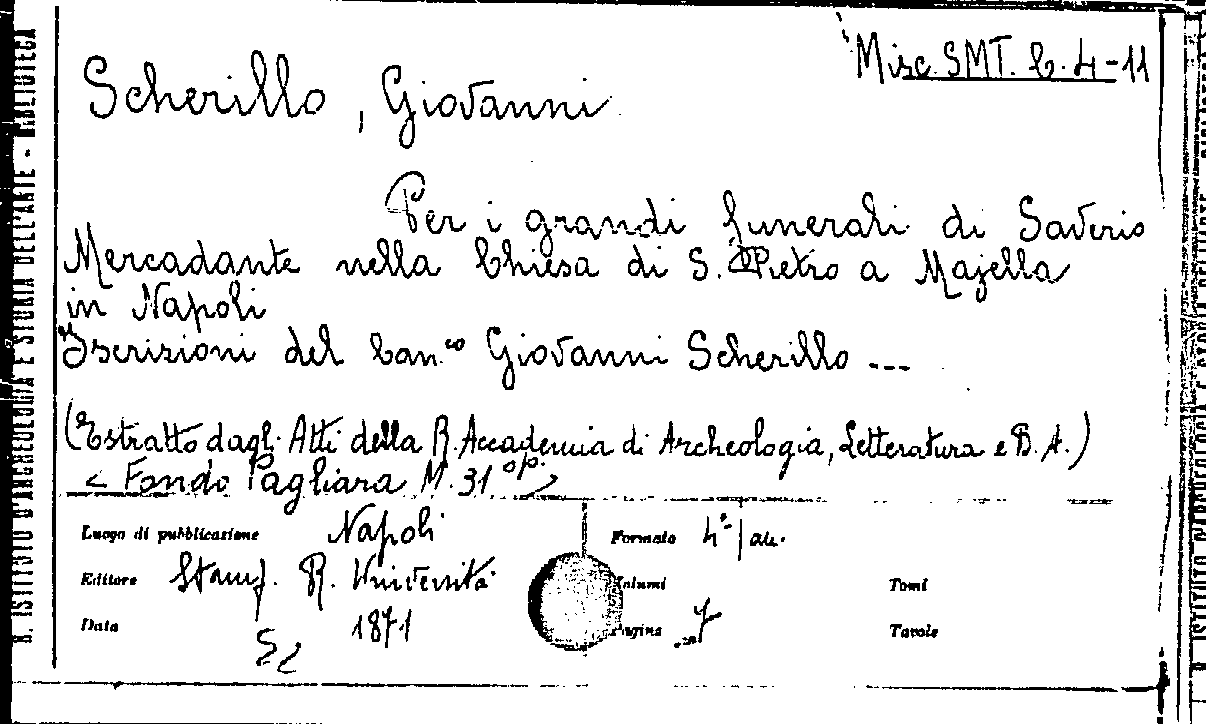 Misc. SMT. C. 4-11
Scherillo, Giovanni
Per i grandi funerali di Saverio
Mercadante nella Chiesa di S. Pietro a Majella
in Napoli
Iscrizioni del Can.co Giovanni Scherillo ---
(Estratto dagli Atti della R. Accademia di Archeologia, Letteratura e B. A.)
< Fondo Pagliara M. 31 op. >
Luogo di pubblicazione Napoli Formato 4°/au.
Editore Stamp. R. Università Volumi Tomi
Data 1871 Pagine 7 Tavole
R. ISTITUTO D'ARCHEOLOGIA E STORIA DELL'ARTE - BIBLIOTECA